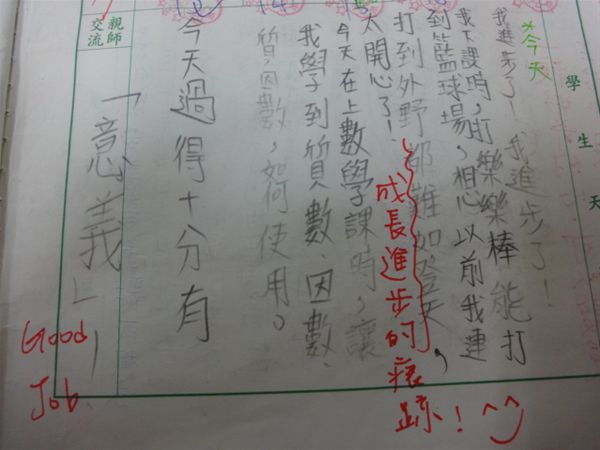 學生天
*今天
我進步了！我進步了！
我下課時，打樂樂棒能打
到籃球場，想以前我連
打到外野都難如登天，
太開心了！
成長進步的痕跡！^^
今天在上數學課時，讓
我學到質數、因數、
質因數，如何使用。
今天過得十分有
親師
交流
「意義」
Good
Job